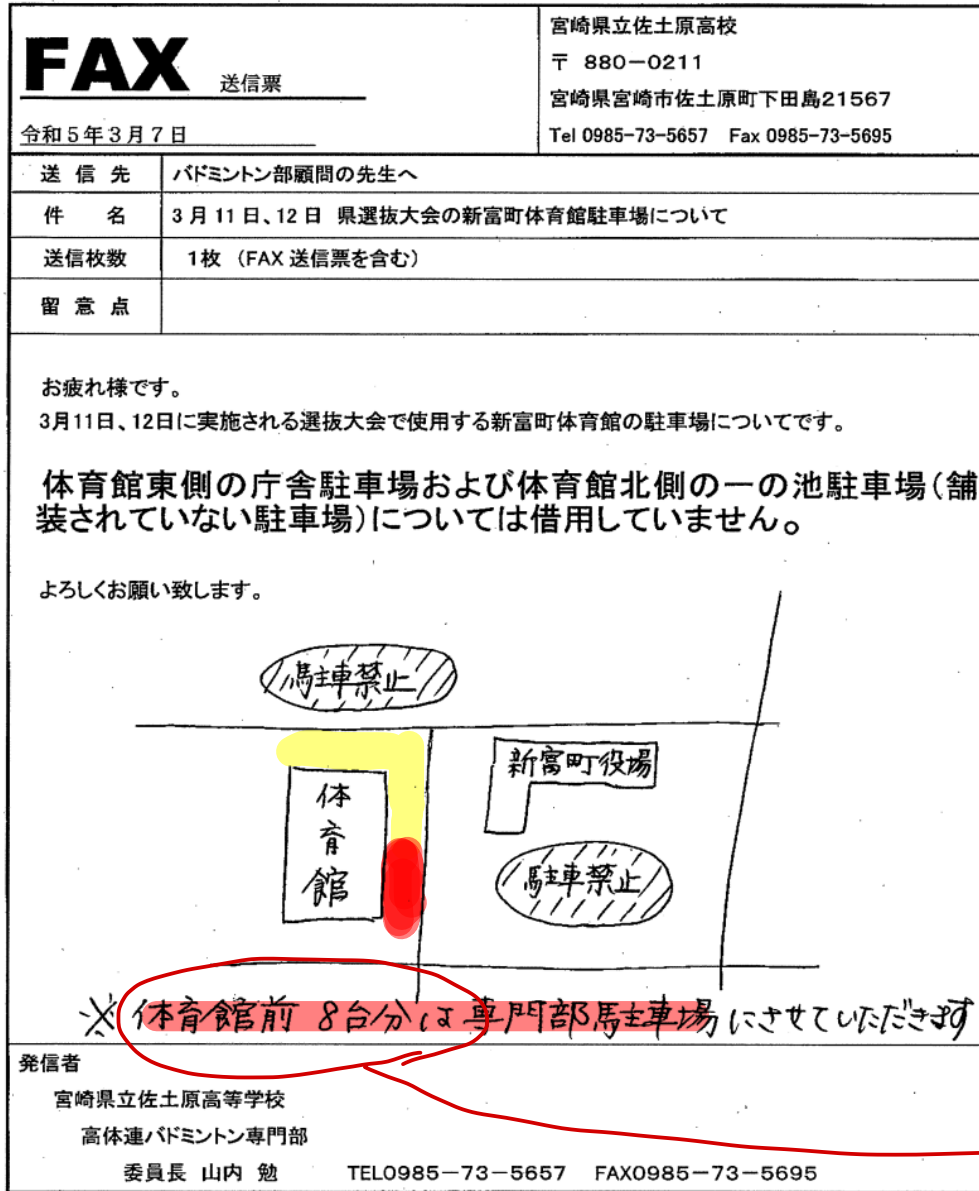 FAX 送信票
令和5年3月7日
宮崎県立佐土原高校
〒 880-0211
宮崎県宮崎市佐土原町下田島21567
Tel 0985-73-5657 Fax 0985-73-5695
送信先 バドミントン部顧問の先生へ
件名 3月11日、12日 県選抜大会の新富町体育館駐車場について
送信枚数 1枚 (FAX送信票を含む)
留意点
お疲れ様です。
3月11日、12日に実施される選抜大会で使用する新富町体育館の駐車場についてです。
体育館東側の庁舎駐車場および体育館北側の一の池駐車場(舗
装されていない駐車場)については借用していません。
よろしくお願い致します。
駐車禁止
新富町役場
体育館
駐車禁止
※体育館前 8台分は専門部駐車場にさせていただきます
発信者
宮崎県立佐土原高等学校
高体連バドミントン専門部
委員長 山内 勉 TEL0985-73-5657 FAX0985-73-5695